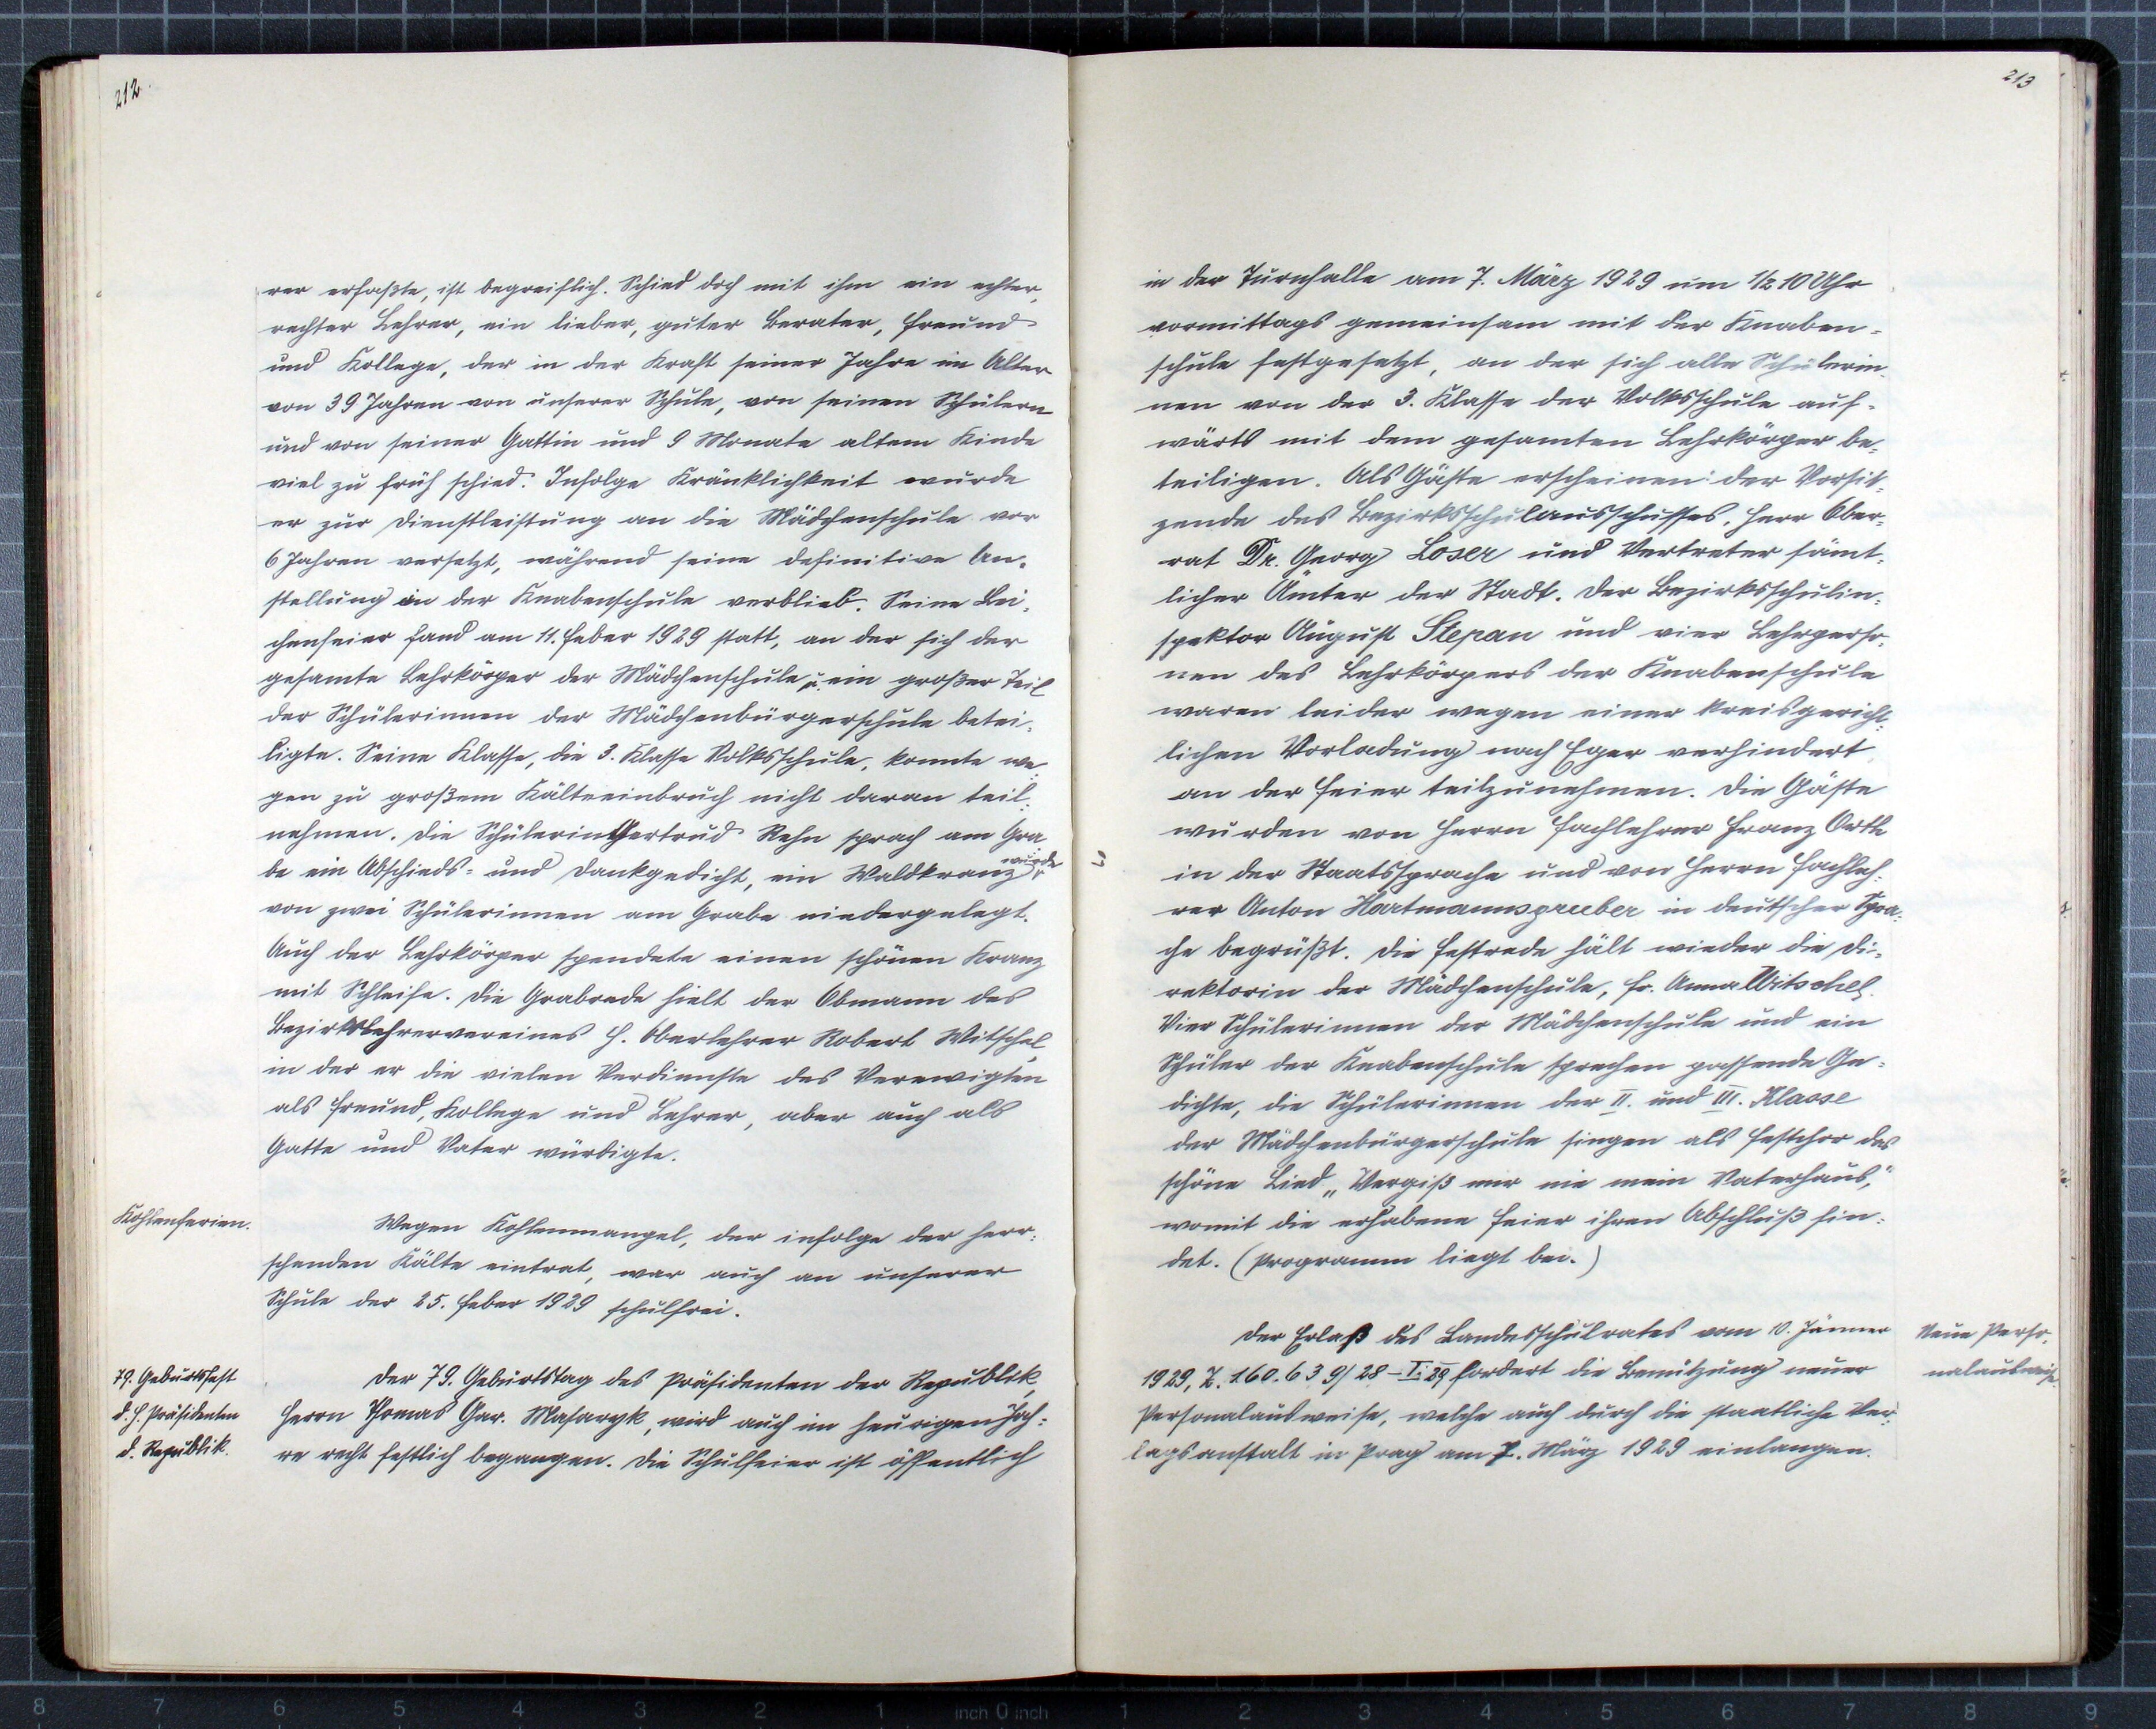 212.
rer erfaßte, ist begreiflich. Schied doch mit ihm ein echter,
rechter Lehrer, ein lieber, guter Berater, Freund
und Kollege, der in der Kraft seiner Jahre im Alter
von 39 Jahren von unserer Schule, von seinen Schülern
und von seiner Gattin und 9 Monate altem Kinde
viel zu früh schied. Infolge Kränklichkeit wurde
er zur Dienstleistung an die Mädchenschule vor
6 Jahren versetzt, während seine definitive An-
stellung an der Knabenschule verblieb. Seine Lei-
chenfeier fand am 11. Feber 1929 statt, an der sich der
gesamte Lehrkörper der Mädchenschule u. ein großer Teil
der Schülerinnen der Mädchenbürgerschule betei-
ligte. Seine Klasse, die 3. Klasse Volksschule, konnte we-
gen zu großem Kälteeinbruch nicht daran teil-
nehmen. Die Schülerin Gertrud Rehn sprach am Gra-
be ein Abschieds- und Dankgedicht, ein Waldkranz wurde
von zwei Schülerinnen am Grabe niedergelegt.
Auch der Lehrkörper spendete einen schönen Kranz
mit Schleife. Die Grabrede hielt der Obmann des
Bezirkslehrervereines H. Oberlehrer Robert Witschel,
in der er die vielen Verdienste des Verewigten
als Freund, Kollege und Lehrer, aber auch als
Gatte und Vater würdigte.
Kohlenferien.
Wegen Kohlenmangel, der infolge der herr-
schenden Kälte eintrat, war auch an unserer
Schule der 25. Feber 1929 schulfrei.
79. Geburtsfest
d. H. Präsidenten
d. Republik.
Der 79. Geburtstag des Präsidenten der Republik,
Herrn Thomas Gar. Masaryk, wird auch im heurigen Jah-
re recht festlich begangen. Die Schulfeier ist öffentlich
213
in der Turnhalle am 7. März 1929 um 1/2 10 Uhr
vormittags gemeinsam mit der Knaben-
schule festgesetzt, an der sich alle Schülerin-
nen von der 3. Klasse der Volksschule auf-
wärts mit dem gesamten Lehrkörper be-
teiligen. Als Gäste erscheinen: der Vorsit-
zende des Bezirksschulausschusses, Herr Ober-
rat Dr. Georg Loser und Vertreter sämt-
licher Ämter der Stadt. Der Bezirksschulin-
spektor August Stepan und vier Lehrperso-
nen des Lehrkörpers der Knabenschule
waren leider wegen einer kreisgericht-
lichen Vorladung nach Eger verhindert,
an der Feier teilzunehmen. Die Gäste
wurden von Herrn Fachlehrer Franz Orth
in der Staatssprache und von Herrn Fachleh-
rer Anton Hartmannsgruber in deutscher Spra-
che begrüßt. Die Festrede hält wieder die Di-
rektorin der Mädchenschule, Fr. Anna Witschel.
Vier Schülerinnen der Mädchenschule und ein
Schüler der Knabenschule sprechen passende Ge-
dichte, die Schülerinnen der II. und III. Klasse
der Mädchenbürgerschule singen als Festchor das
schöne Lied „Vergiß mir nie mein Vaterhaus,"
womit die erhabene Feier ihren Abschluß fin-
det. (Programm liegt bei.)
Der Erlaß des Landesschulrates vom 10. Jänner
1929, Z. 160.639/28-I: 29 fordert die Benützung neuer
Personalausweise, welche auch durch die staatliche Ver-
lagsanstalt in Prag am 7. März 1929 einlangen.
Neue Perso-
nalausweise.